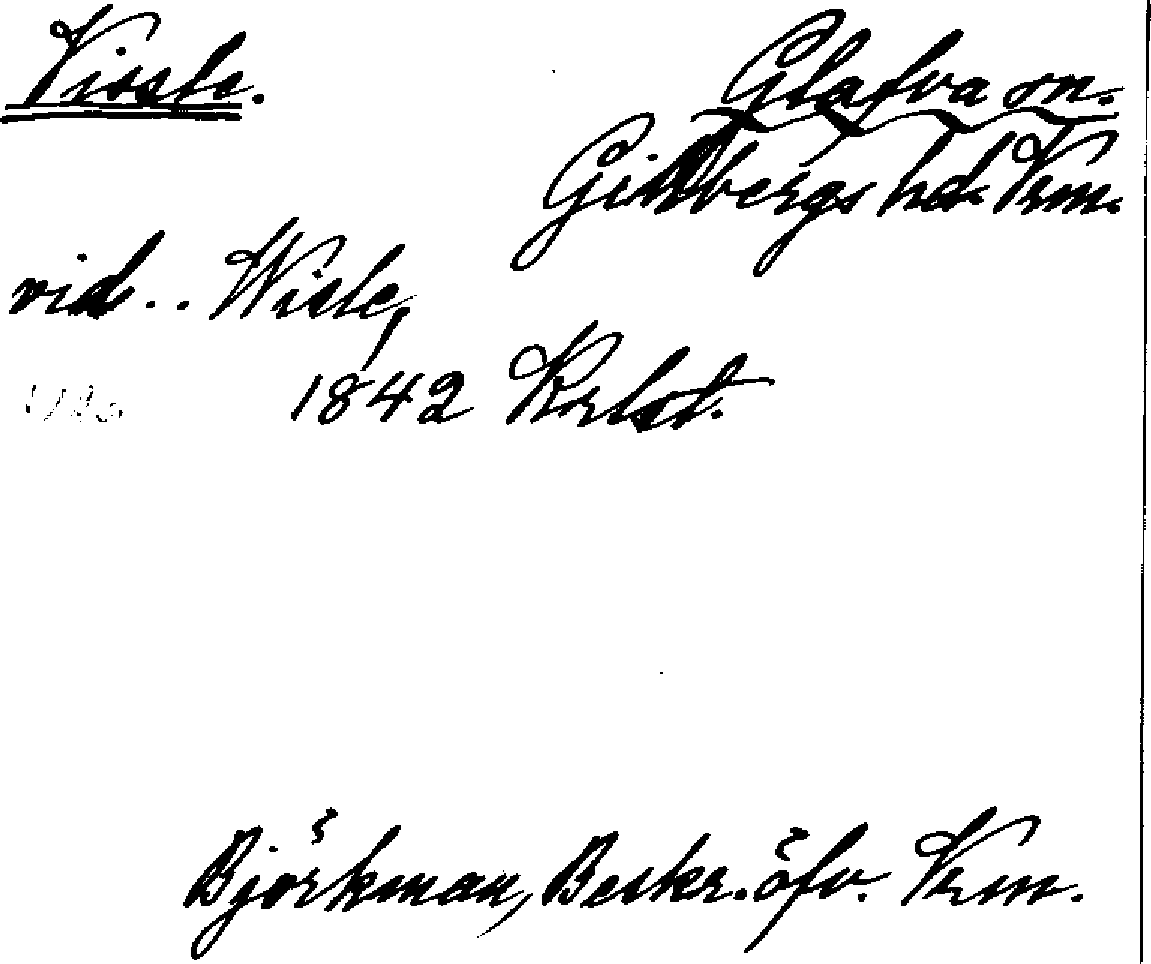 Vissle. Glafva sn.
Gillbergs hd. Vrm.
vid . . Wisle,
1842 Krlst.
Björkman, Beskr. öfv. Vrm.